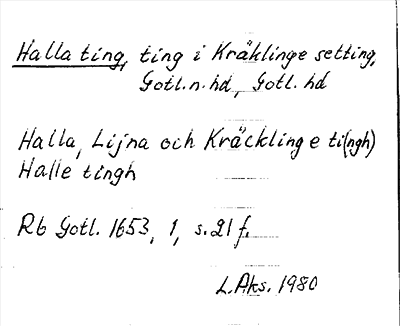 Halla ting, ting i Kräklinge setting,
Gotl.n.hd, Gotl. hd
Halla, Lijna och Kräcklinge ti(ngh)
Halle tingh
Rb Gotl. 1653, 1, s.21 f.
L.Aks. 1980